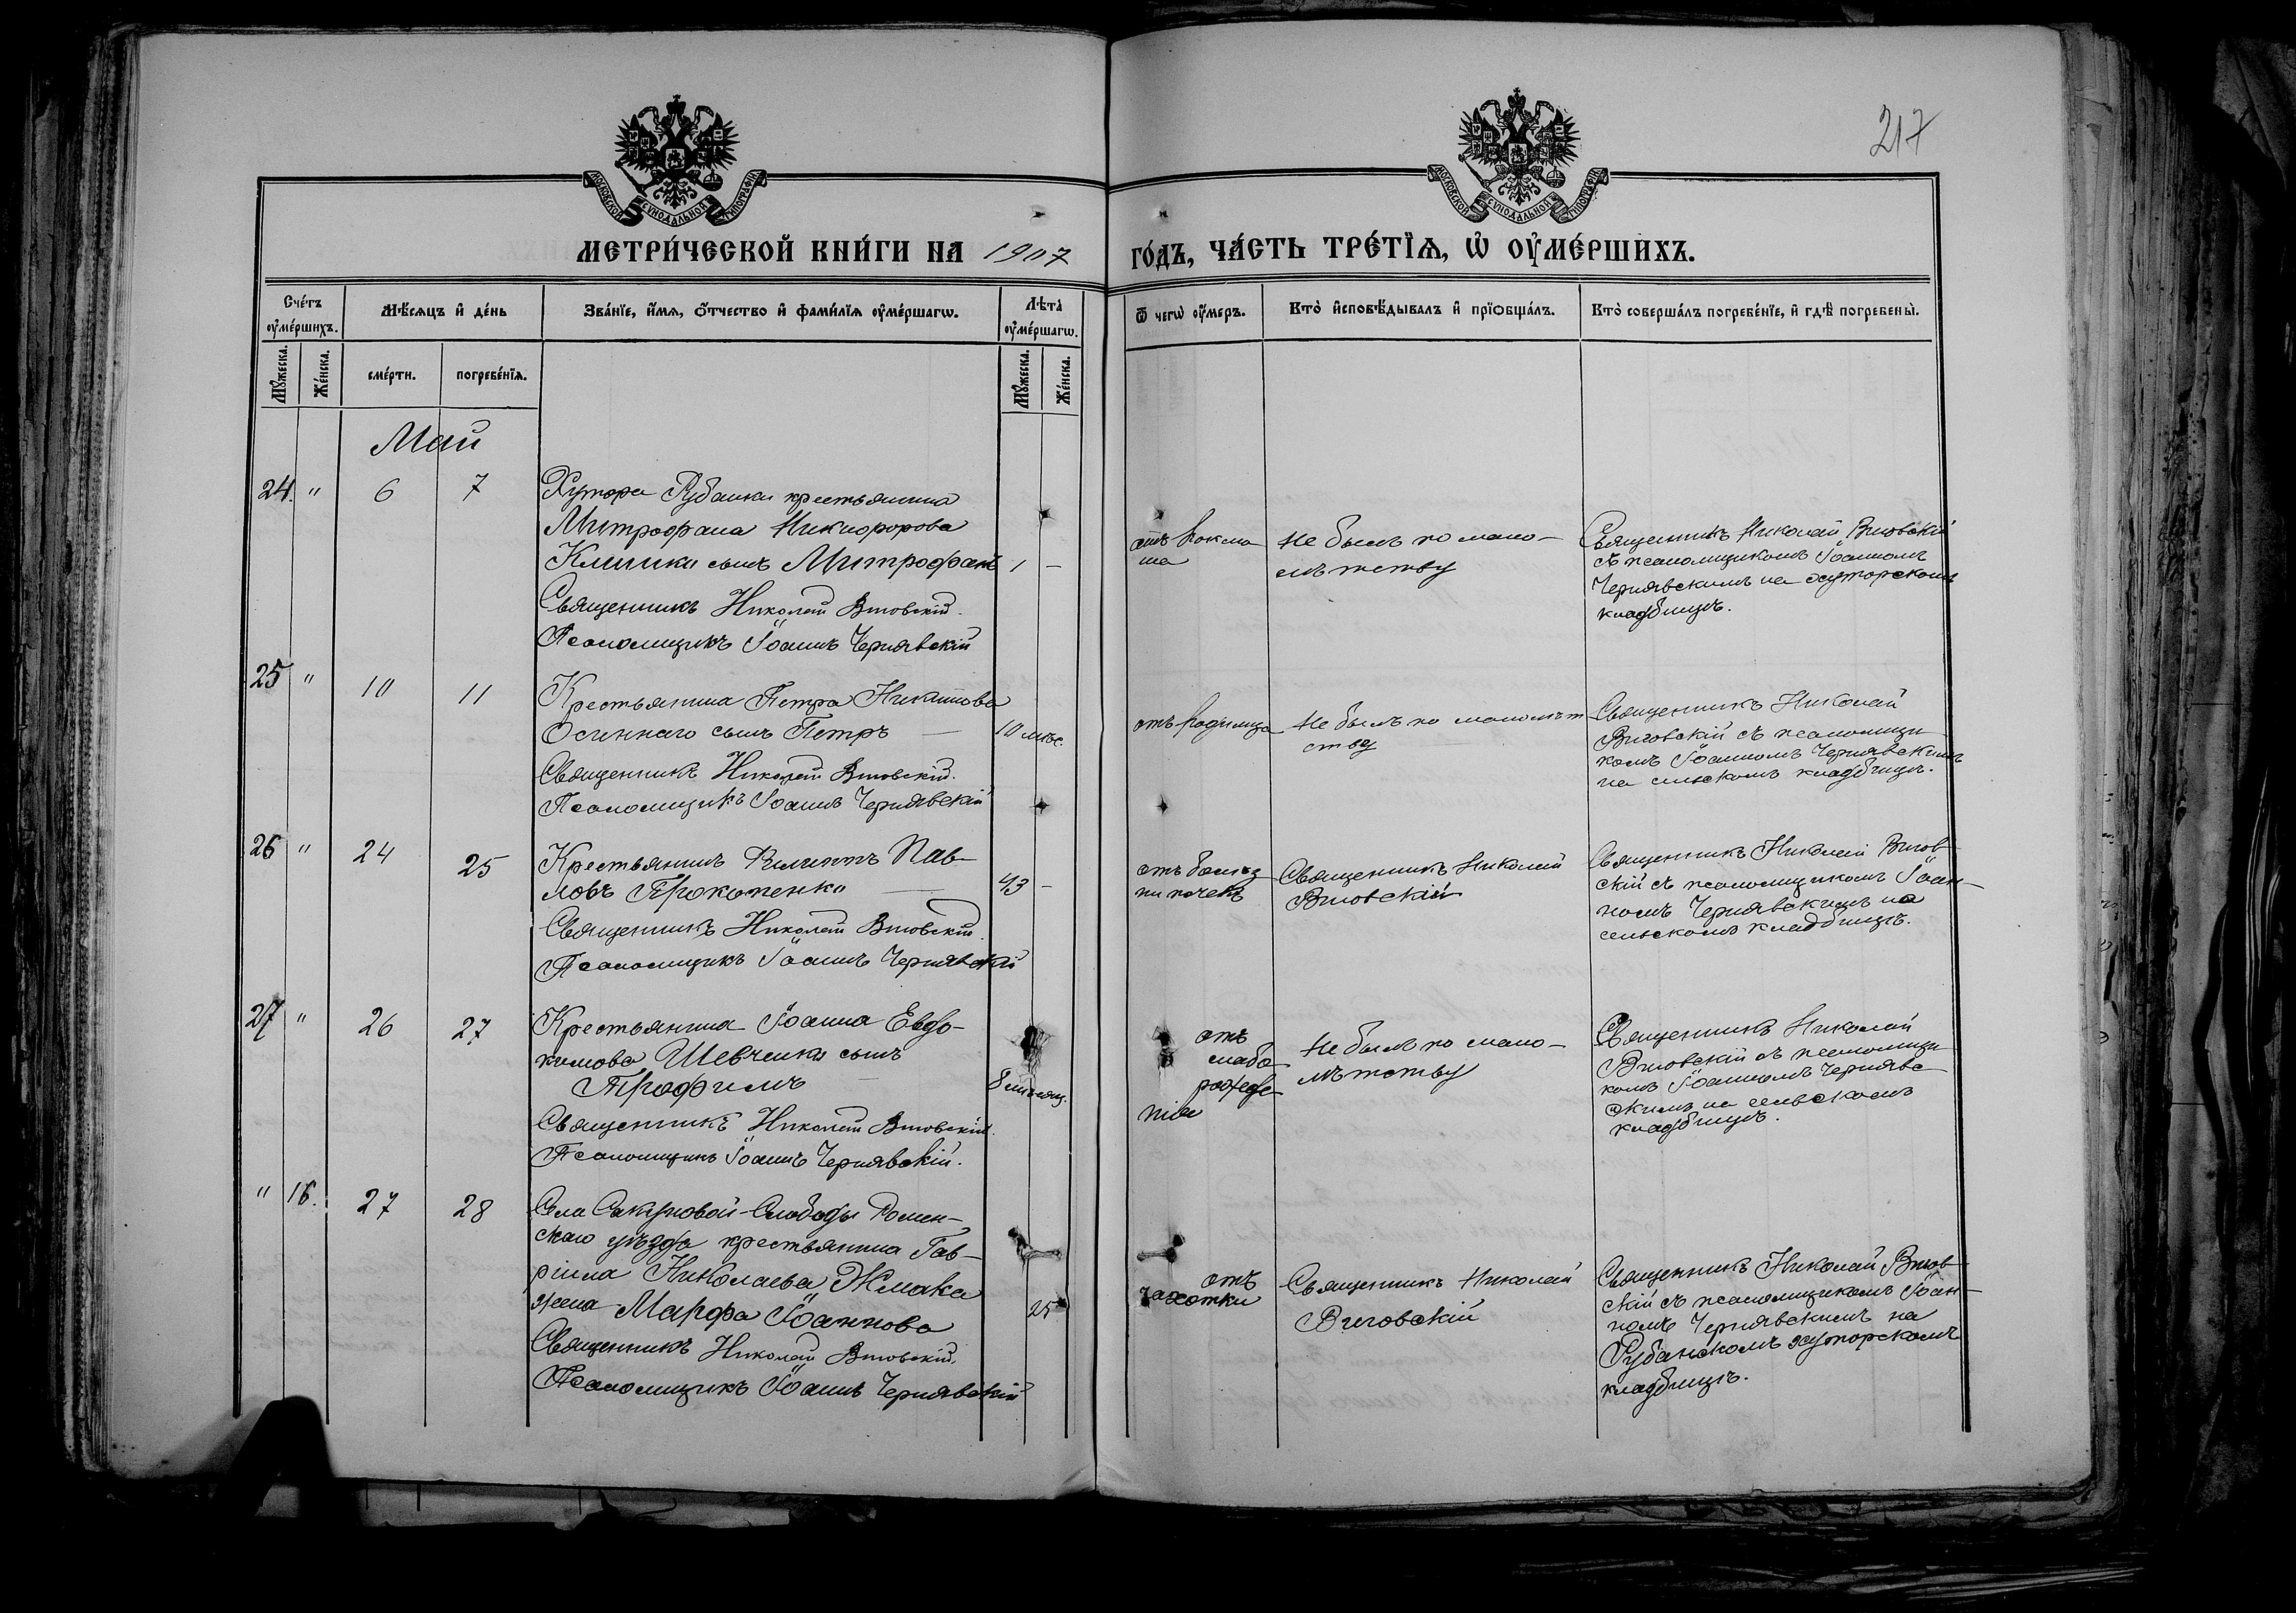 217
МОСКОВСКОЙ СѴНОДАЛЬНОЙ ТИПОГРАФІИ
МОСКОВСКОЙ СѴНОДАЛЬНОЙ ТИПОГРАФІИ
МЕТРИ́ЧЕСКОЙ КНИ́ГИ НА 1907 ГО́ДЪ, ЧА́СТЬ ТРЕ́ТЇѦ, Ѡ ОУ҆МЕ́РШИХЪ.
Сче́тъ оу҆ме́ршихъ.
Мѣ́сяцъ и҆ де́нь
Зва́нїе, и҆́мя, ѻ҆́тчество и҆ фами́лїя оу҆ме́ршагѡ.
Лѣта̀ оу҆ме́ршагѡ.
Ѿ чегѡ̀ оу҆́меръ.
Кто̀ и҆сповѣ́дывалъ и҆ прїѡбща́лъ.
Кто̀ соверша́лъ погребе́нїе, и҆ гдѣ̀ погребены̀.
Мꙋ́жеска.
Же́нска.
сме́рти.
погребе́нїя.
Мꙋ́жеска.
Же́нска.
Май
24. " 6 7
Хутора Рубанки крестьянина
Митрофана Никифорова
Климки сынъ Митрофанъ 1 –
Священникъ Николай Выговскій.
Псаломщикъ Іоаннъ Чернявскій
отъ
Не былъ по мало-
лѣтству
Священникъ Николай Выговскій
съ псаломщикомъ Іоанномъ
Чернявскимъ на хуторскомъ
кладбищѣ.
25 " 10 11
Крестьянина Петра Никитова
Осинняго сынъ Петръ – 10 мѣс.
Священникъ Николай Выговскій.
Псаломщикъ Іоаннъ Чернявскій
отъ родимца
Не былъ по малолѣт-
ству
Священникъ Николай
Выговскій съ псаломщи
комъ Іоанномъ Чернявскимъ
на сельскомъ кладбищѣ.
26 " 24 25
Крестьянинъ Филиппъ Пав-
ловъ Прокопенко – 43 –
Священникъ Николай Выговскій.
Псаломщикъ Іоаннъ Чернявскій
отъ болѣз
ни почекъ
Священникъ Николай
Выговскій
Священникъ Николай Выгов
скій съ псаломщикомъ Іоан-
номъ Чернявскимъ на
сельскомъ кладбищѣ.
27 " 26 27
Крестьянина Іоанна Евдо-
кимова Шевченка сынъ
Трофимъ – 8 мѣсяц.
Священникъ Николай Выговскій.
Псаломщикъ Іоаннъ Чернявскій.
отъ
слабо
рожде
нія
Не былъ по мало-
лѣтству
Священникъ Николай
Выговскій съ псаломщи
комъ Іоанномъ Чернявс
скимъ на сельскомъ
кладбищѣ.
" 16. 27 28
Села Сакуновой-Слободы Ромен-
скаго уѣзда крестьянина Гав-
ріила Николаева Жмака
жена Марфа Іоаннова 25
Священникъ Николай Выговскій.
Псаломщикъ Іоаннъ Чернявскій
отъ
чахотки
Священникъ Николай
Выговскій
Священникъ Николай Выгов
скій съ псаломщикомъ Іоан-
номъ Чернявскимъ на
Рубанскомъ хуторскомъ
кладбищѣ.